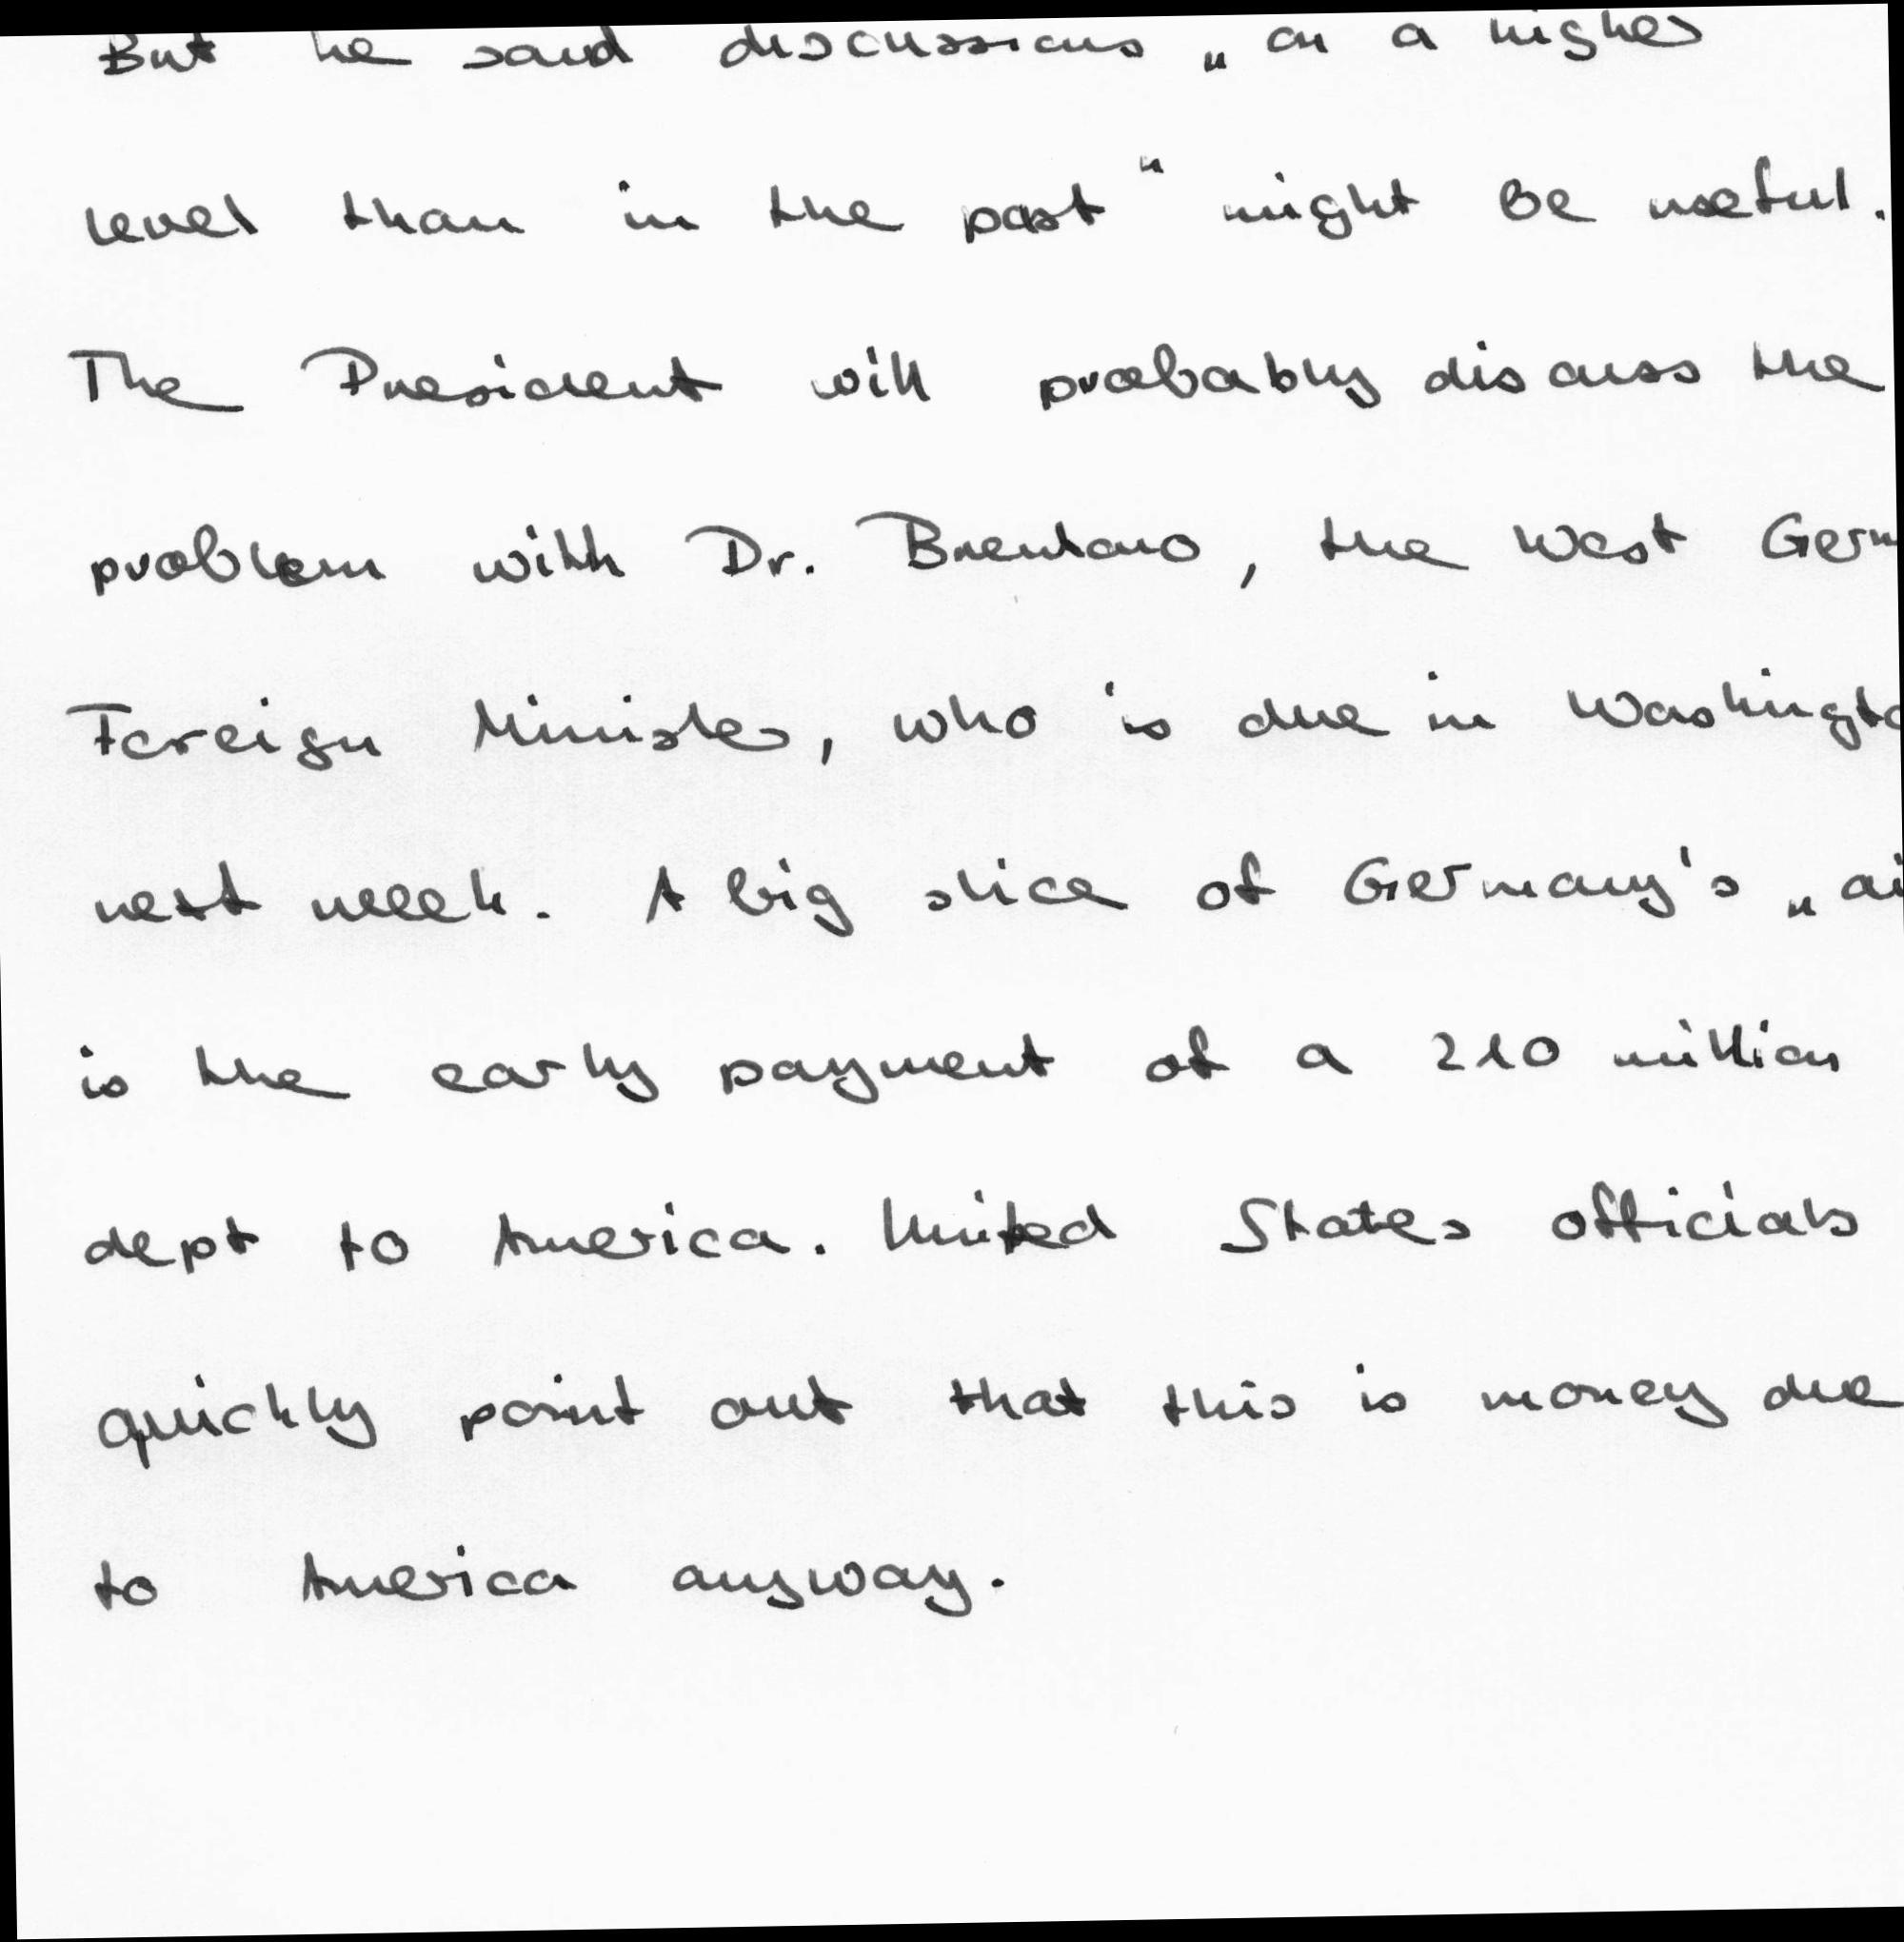 But he said discussions „on a higher
level than in the past“ might be useful.
The President will probably discuss the
problem with Dr. Brentano, the West Germ
Foreign Minister, who is due in Washingto
next week. A big slice of Germany's „ai
is the early payment of a 210 million
dept to America. United States officials
quickly point out that this is money due
to America anyway.